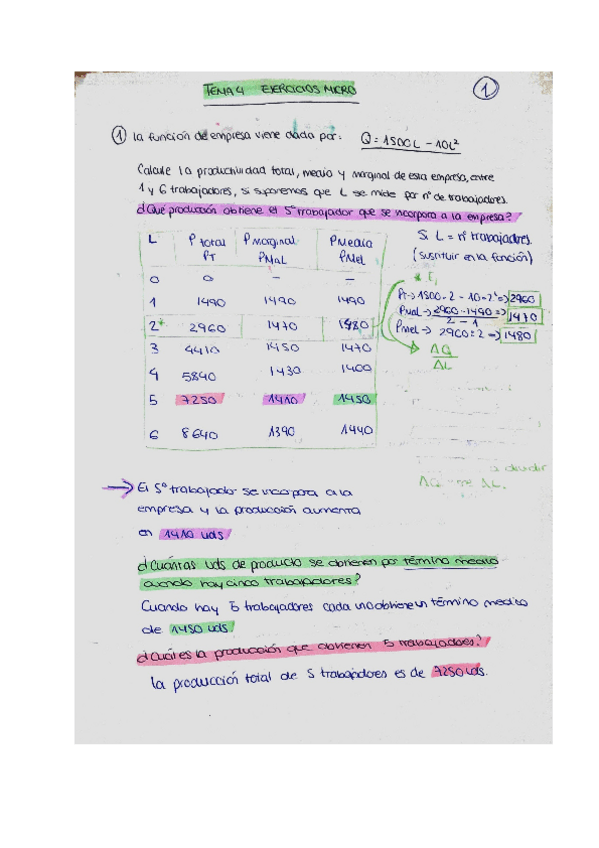 TEMA 4 EJERCICIOS MICRO
1
1 la función de empresa viene dada por: Q = 1500L - 10L²
Calcule la productividad total, medio y marginal de esta empresa, entre
1 y 6 trabajadores, si suponemos que L se mide por nº de trabajadores.
¿Qué producción obtiene el 5º trabajador que se incorpora a la empresa?
L P total PT P marginal PMaL P Media PMeL
0 0 - -
1 1490 1490 1490
2* 2960 1470 1480
3 4410 1450 1470
4 5840 1430 1460
5 7250 1410 1450
6 8640 1390 1440
Si L = nº trabajadores.
(sustituir en la función)
* Ej
PT → 1500·2 - 10·2² => 2960
PMaL → 2960 - 1490 / 2 - 1 => 1470
PMeL → 2960 ÷ 2 => 1480
ΔQ
ΔL
a dividir
ΔQ ΔL.
→ El 5º trabajador se incorpora a la
empresa y la producción aumenta
en 1410 uds
¿Cuántas uds de producto se obtienen por término medio
cuando hay cinco trabajadores?
Cuando hay 5 trabajadores cada uno obtiene un término medio
de 1450 uds
¿Cuál es la producción que obtienen 5 trabajadores?
la producción total de 5 trabajadores es de 7250 uds.